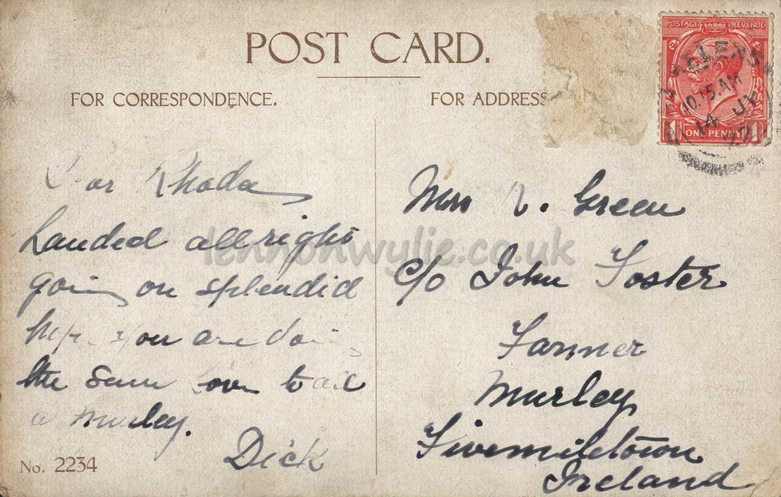 POST CARD.
FOR CORRESPONDENCE.
FOR ADDRESS
POSTAGE REVENUE
ONE PENNY
10.15 AM
14 JY
27
Dear Rhoda
Landed allright
going on splendid
hope you are doing
the same love to all
a Murley.
Dick
No. 2234
R. Green
c/o John Foster
Farmer
Murley
Fivemiletown
Ireland
lennonwylie.co.uk